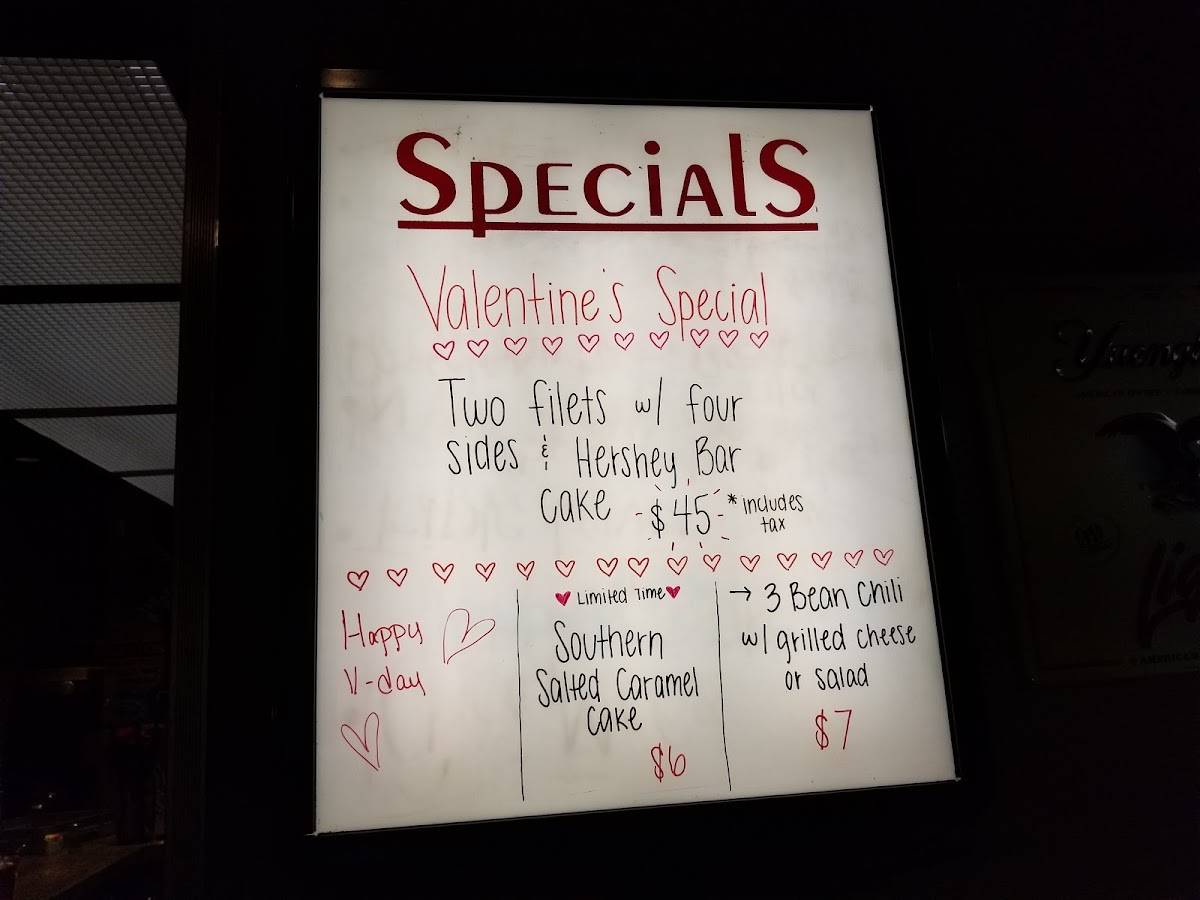 Specials
Valentine's Special
Two filets w/ four
sides & Hershey Bar
cake $45 *includes
tax
Happy
V-day
Limited Time
Southern
Salted Caramel
Cake
$6
→ 3 Bean Chili
w/ grilled cheese
or salad
$7